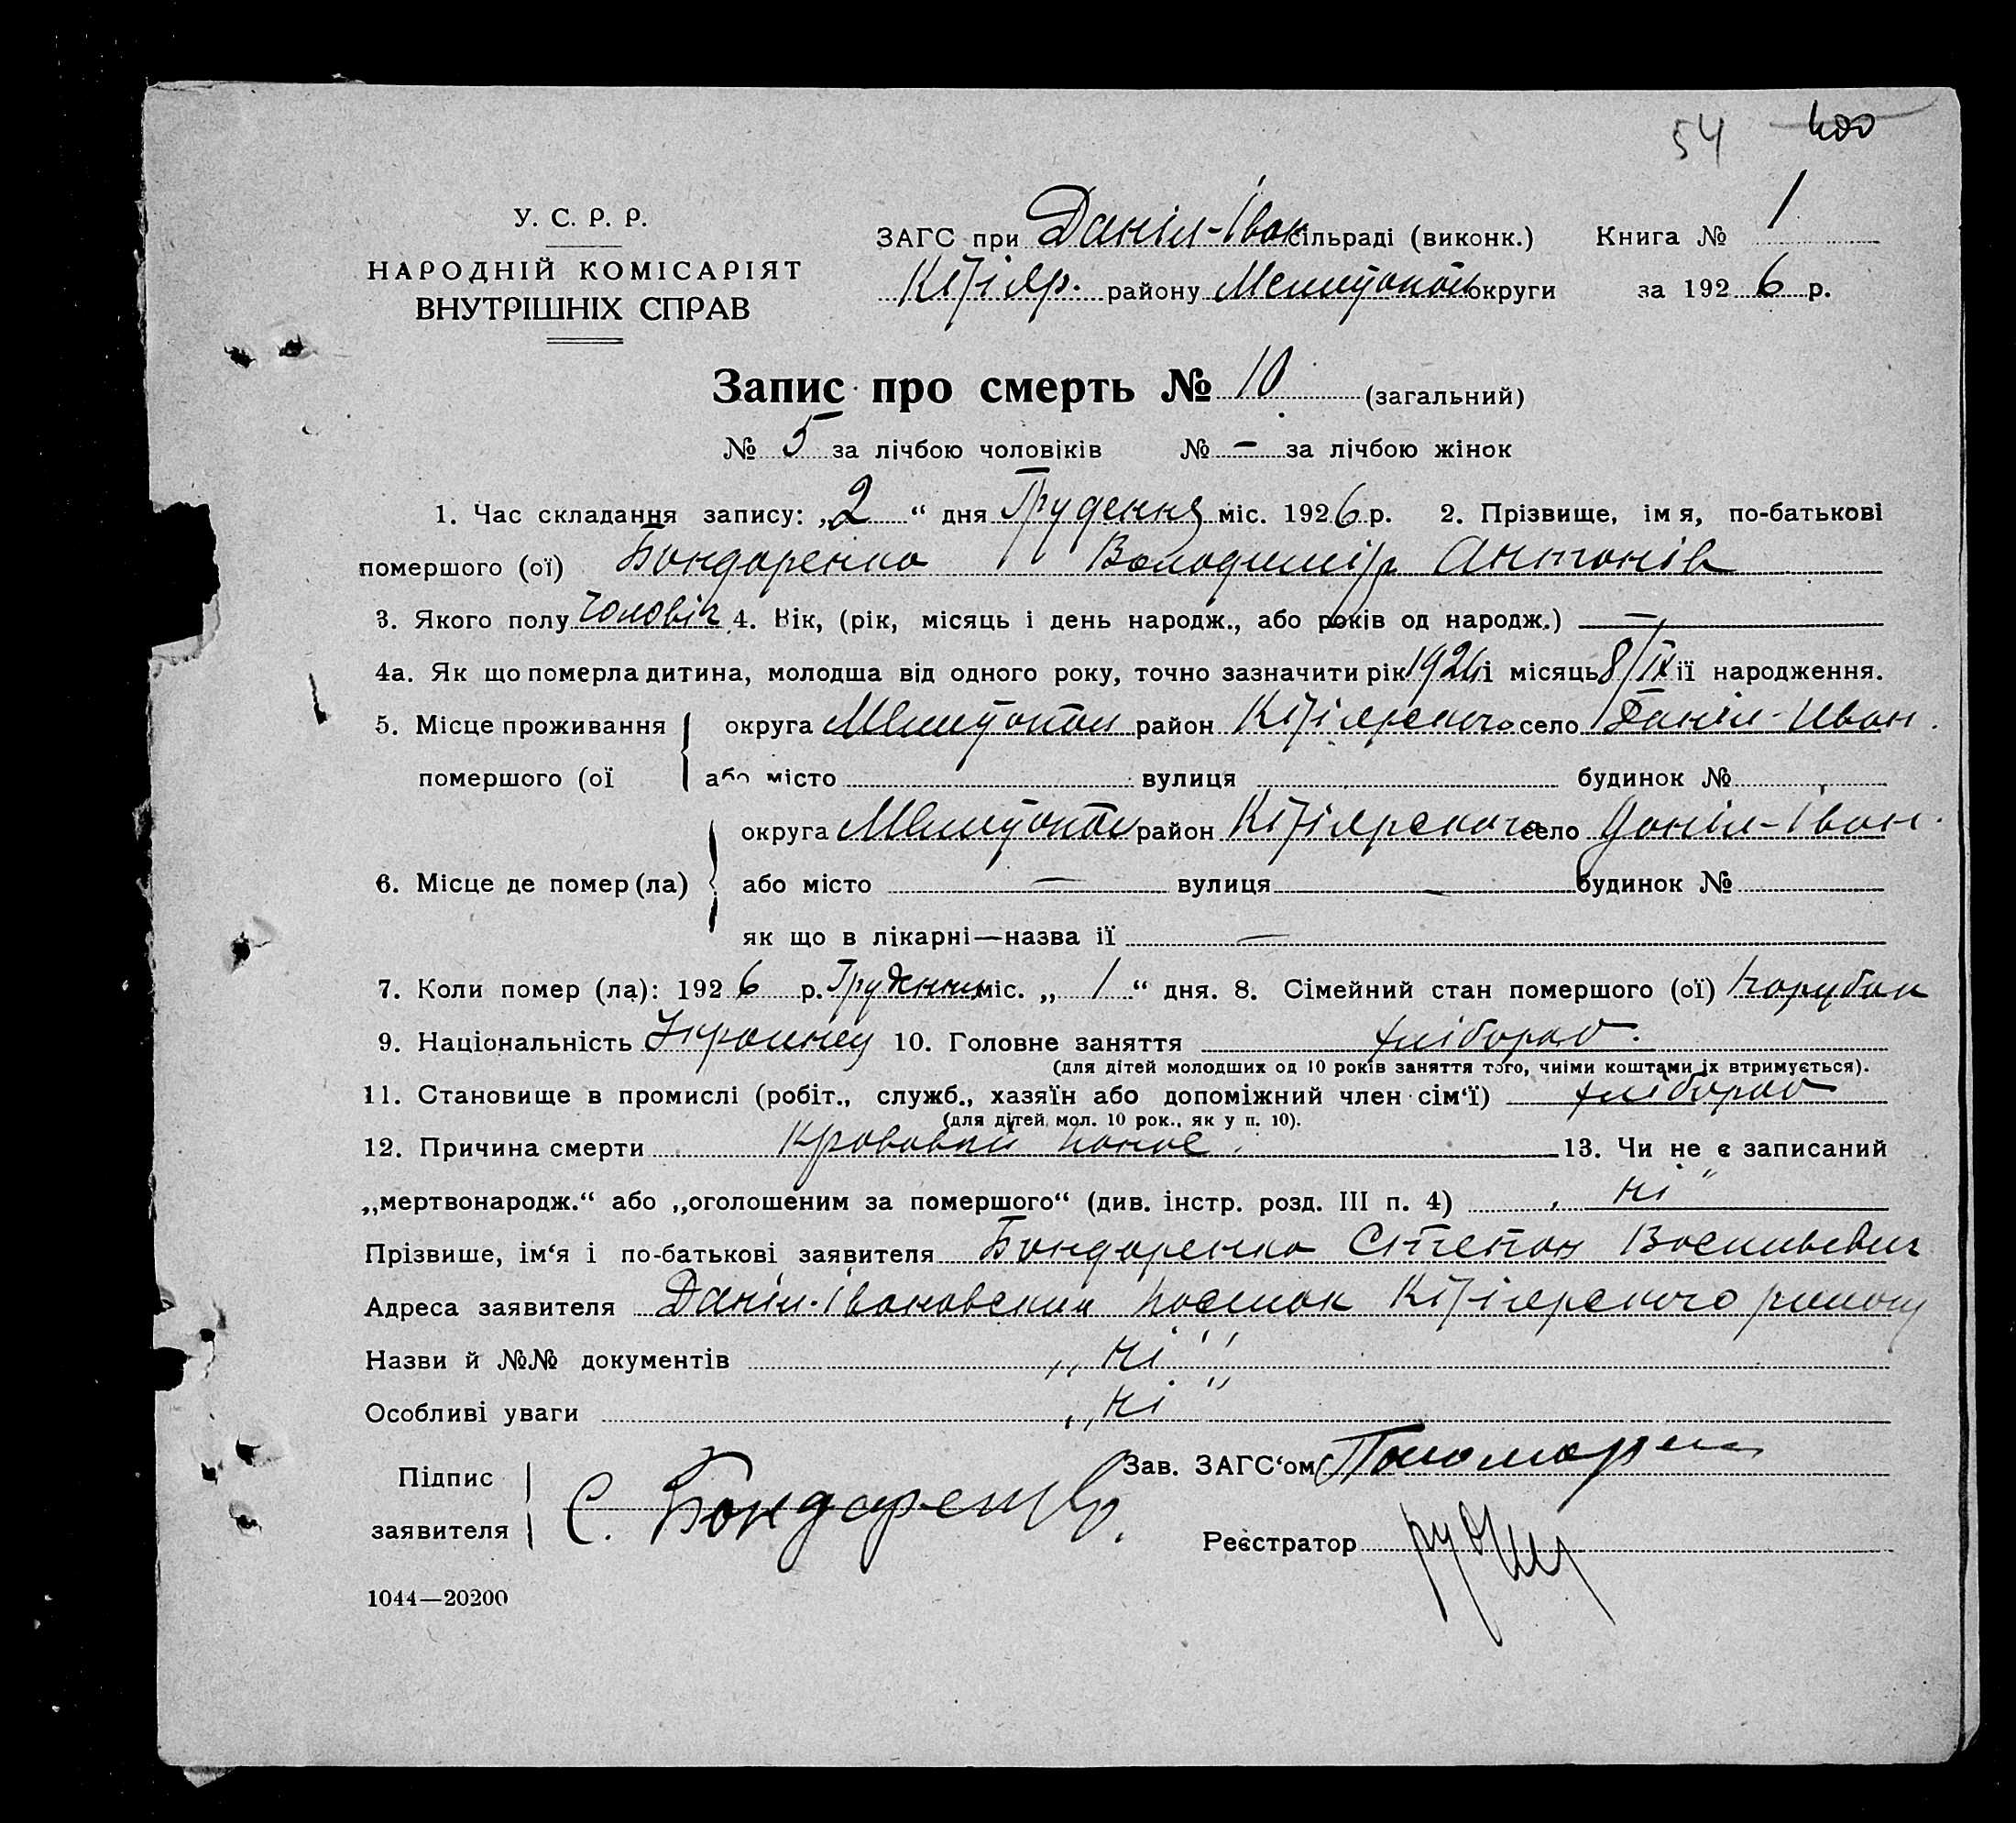 54 400
У. С. Р. Р.
НАРОДНІЙ КОМІСАРІЯТ
ВНУТРІШНІХ СПРАВ
ЗАГС при Даніл-Іван сільраді (виконк.) Книга № 1
Кізіяр. району Мелитопол округи за 1926 р.
Запис про смерть № 10 (загальний)
№ 5 за лічбою чоловіків № — за лічбою жінок
1. Час складання запису: „2“ дня Грудення міс. 1926 р. 2. Прізвище, імя, по-батькові
помершого (ої) Бондаренко Володимір Антонів
3. Якого полу чоловіч 4. Вік, (рік, місяць і день народж., або років од народж.) —
4а. Як що померла дитина, молодша від одного року, точно зазначити рік 1926 і місяць 8/IX її народження.
5. Місце проживання округа Мелитопол район Кізіярского село Даніл-Иван.
помершого (ої або місто вулиця будинок №
округа Мелитопол район Кізіярского село Даніл-Іван.
6. Місце де помер (ла) або місто — вулиця — будинок №
як що в лікарні—назва ії —
7. Коли помер (ла): 1926 р. Грудення міс. „1“ дня. 8. Сімейний стан помершого (ої) парубок
9. Національність Украинец 10. Головне заняття хлібороб.
(для дітей молодших од 10 років заняття того, чиіми коштами іх втримується).
11. Становище в промислі (робіт., служб., хазяїн або допоміжний член сім‘ї) хлібороб
(для дітей мол. 10 рок., як у п. 10).
12. Причина смерти Кровавий понос. 13. Чи не є записаний
„мертвонародж.“ або „оголошеним за помершого“ (див. інстр. розд. III п. 4) „ні“
Прізвише, ім‘я і по-батькові заявителя Бондаренко Степан Васильевич
Адреса заявителя Даніл-Івановский посилок Кізіярского району
Назви й №№ документів „ні“
Особливі уваги „ні“
Підпис
заявителя С. Бондаренко.
Зав. ЗАГС‘ом
Реєстратор
1044—20200